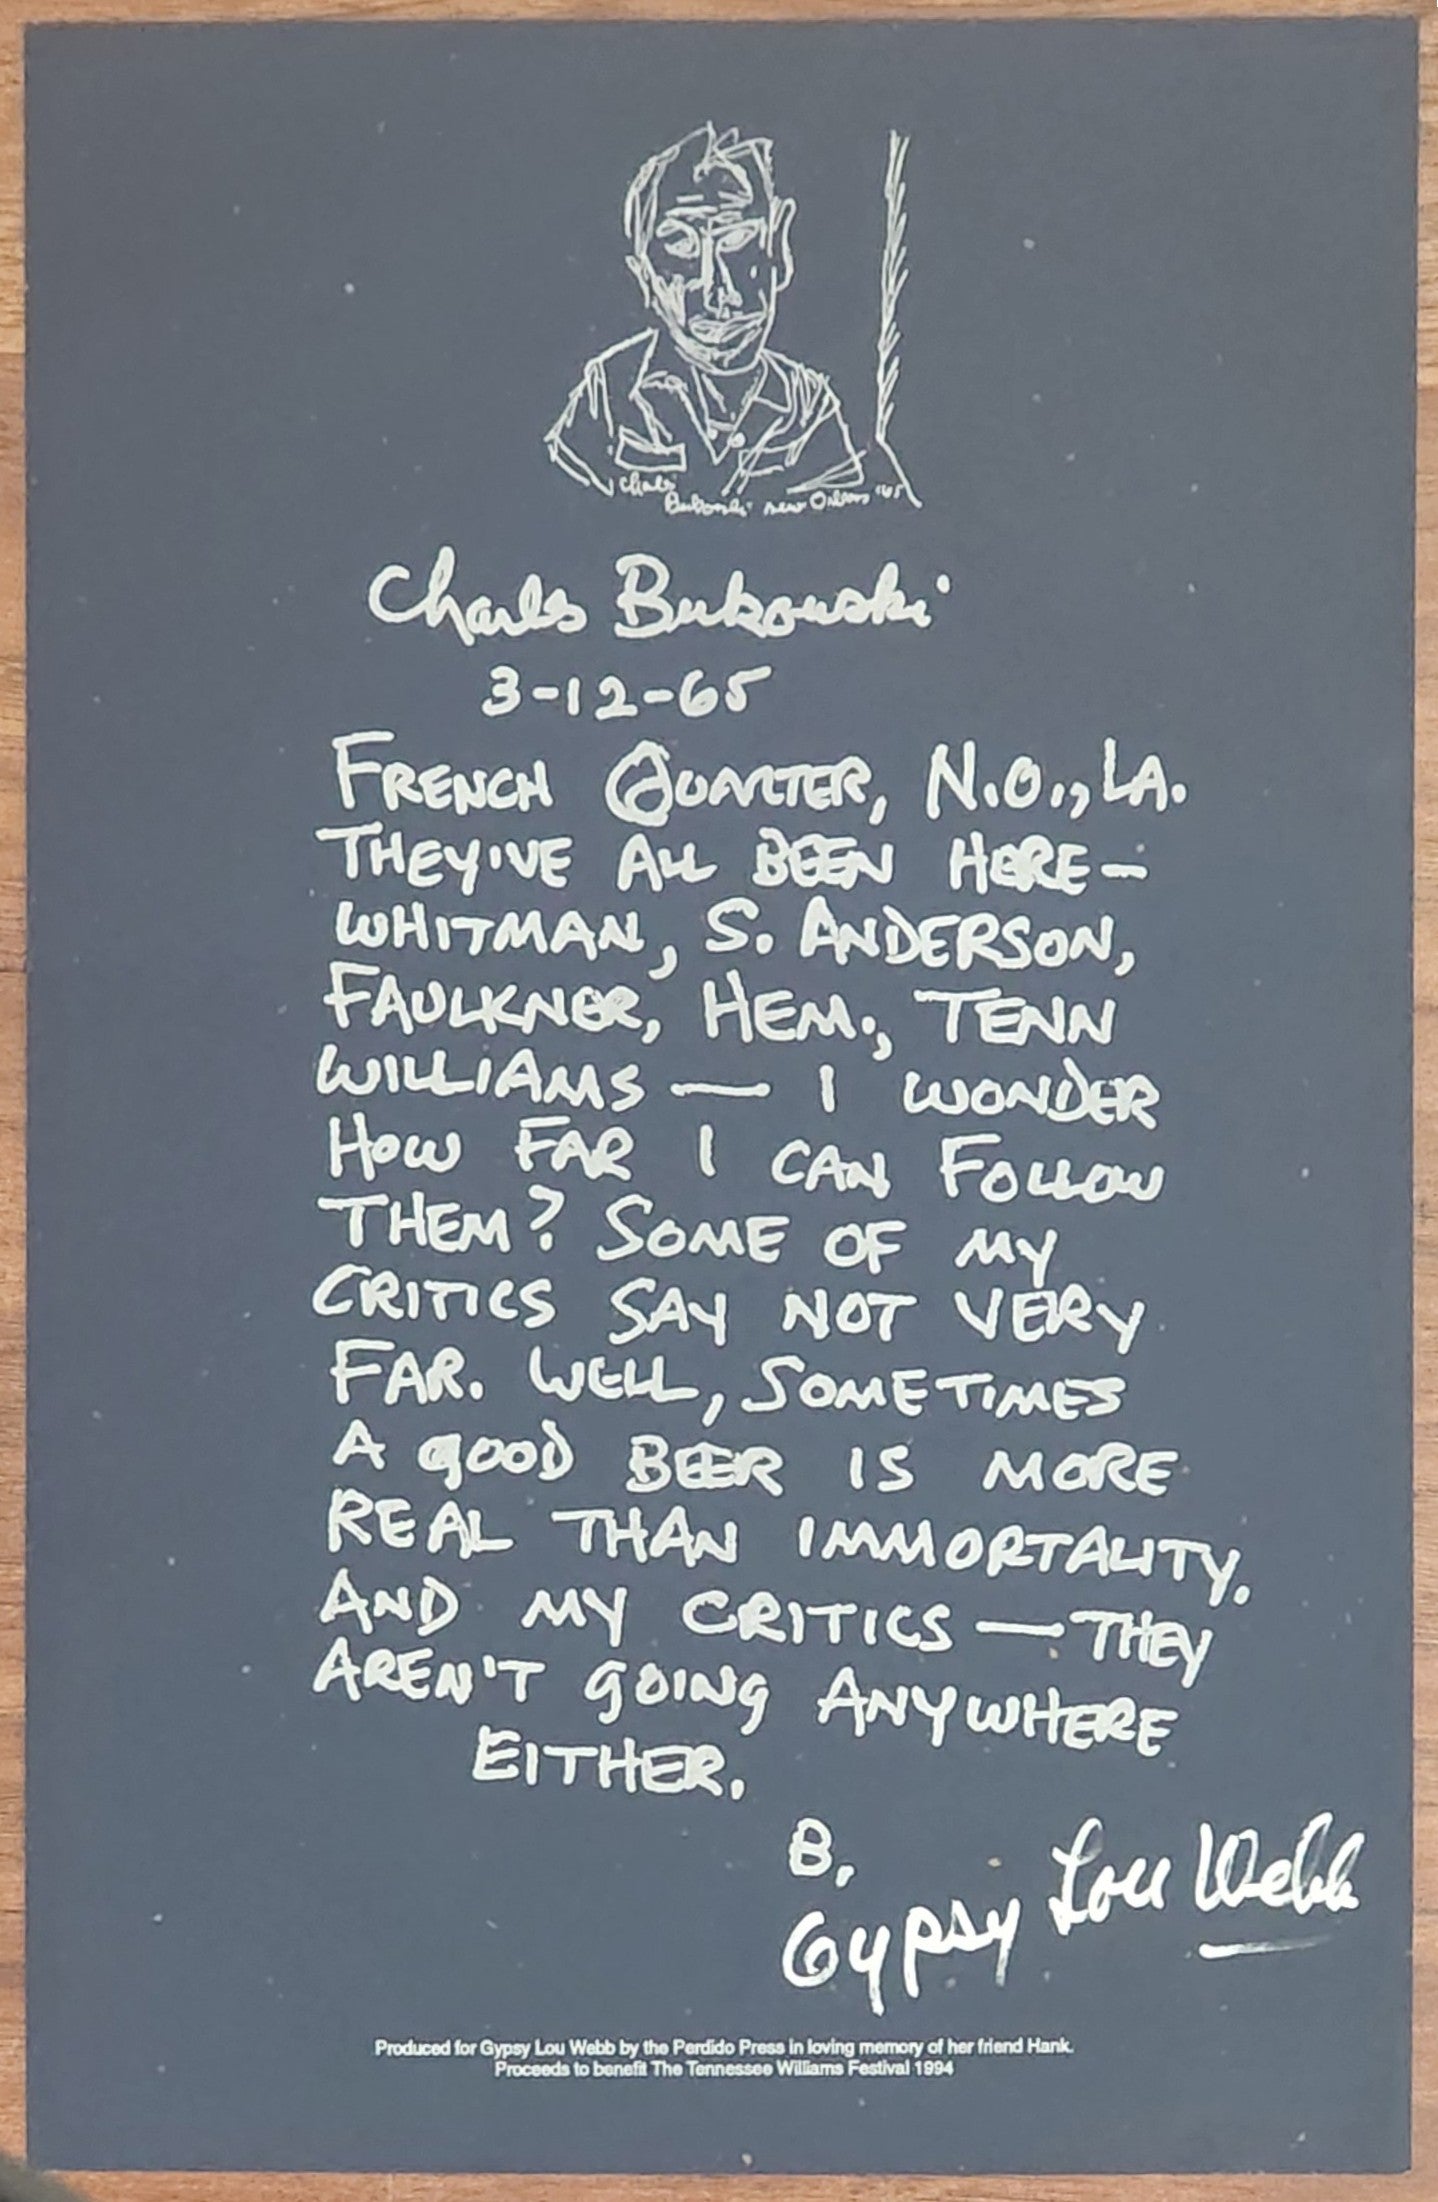 Charles
Bukowski New Orleans '65
Charles Bukowski
3-12-65
FRENCH QUARTER, N.O., LA.
THEY'VE ALL BEEN HERE—
WHITMAN, S. ANDERSON,
FAULKNER, HEM., TENN
WILLIAMS — I WONDER
HOW FAR I CAN FOLLOW
THEM? SOME OF MY
CRITICS SAY NOT VERY
FAR. WELL, SOMETIMES
A GOOD BEER IS MORE
REAL THAN IMMORTALITY.
AND MY CRITICS — THEY
AREN'T GOING ANYWHERE
EITHER.
B.
Gypsy Lou Webb
Produced for Gypsy Lou Webb by the Perdido Press in loving memory of her friend Hank.
Proceeds to benefit The Tennessee Williams Festival 1994